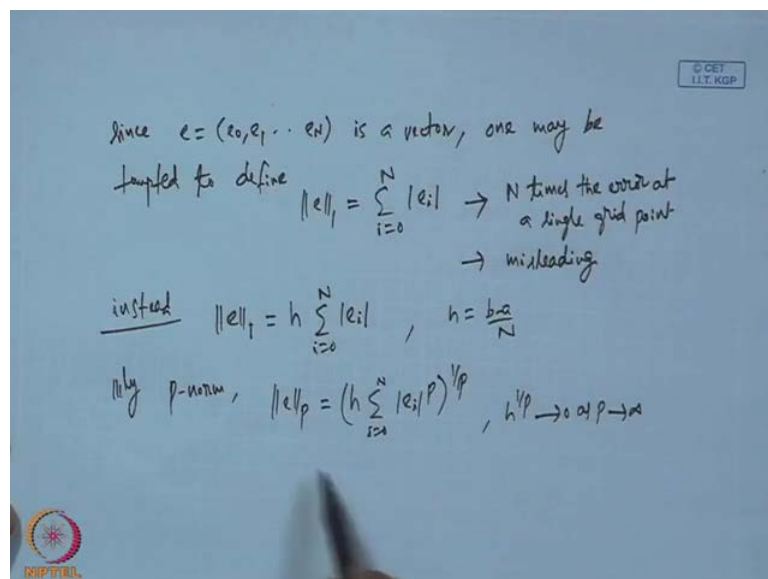 © CET
I.I.T. KGP
Since e = (e₀, e₁ .. e_N) is a vector, one may be
tempted to define
‖e‖₁ = ∑_{i=0}^{N} |e_i| → N times the error at
a single grid point
→ misleading
instead ‖e‖₁ = h ∑_{i=0}^{N} |e_i| , h = (b-a)/N
|||ly p-norm, ‖e‖_p = (h ∑_{i=0}^{N} |e_i|^p)^{1/p} , h^{1/p} → 0 as p → ∞
NPTEL